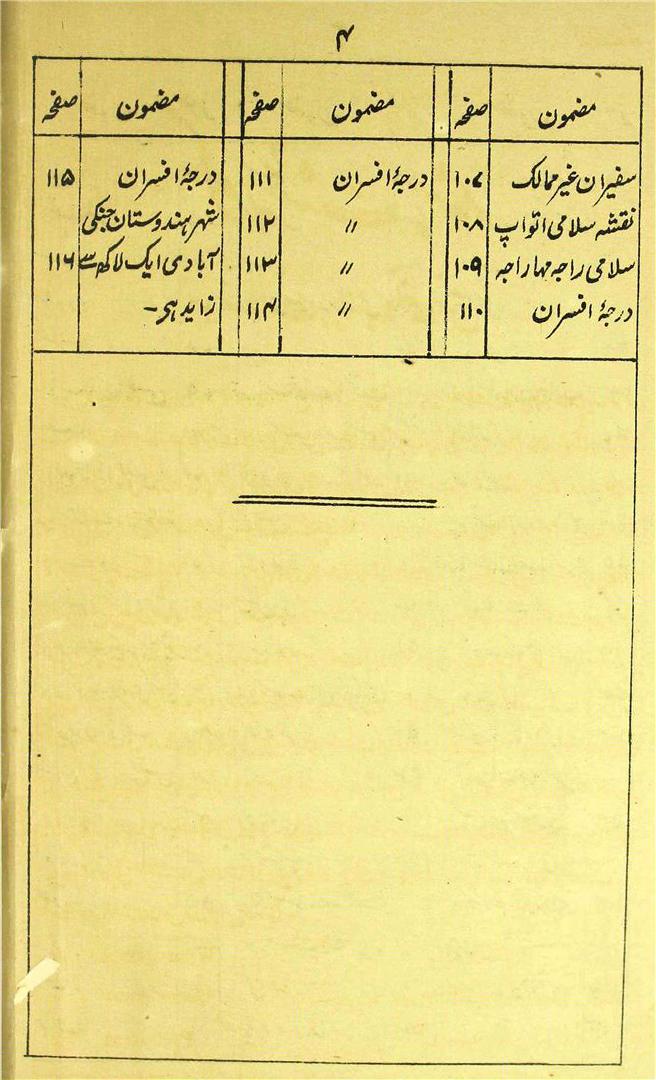 ۴
مضمون صفحہ مضمون صفحہ مضمون صفحہ
سفیران غیر ممالک ۱۰۷ درجۂ افسران ۱۱۱ درجۂ افسران ۱۱۵
نقشہ سلامی اتواپ ۱۰۸ // ۱۱۲ شہر ہندوستان جنکی
سلامی راجہ مہاراجہ ۱۰۹ // ۱۱۳ آبادی ایک لاکھ سے ۱۱۶
درجۂ افسران ۱۱۰ // ۱۱۴ زاید ہی۔